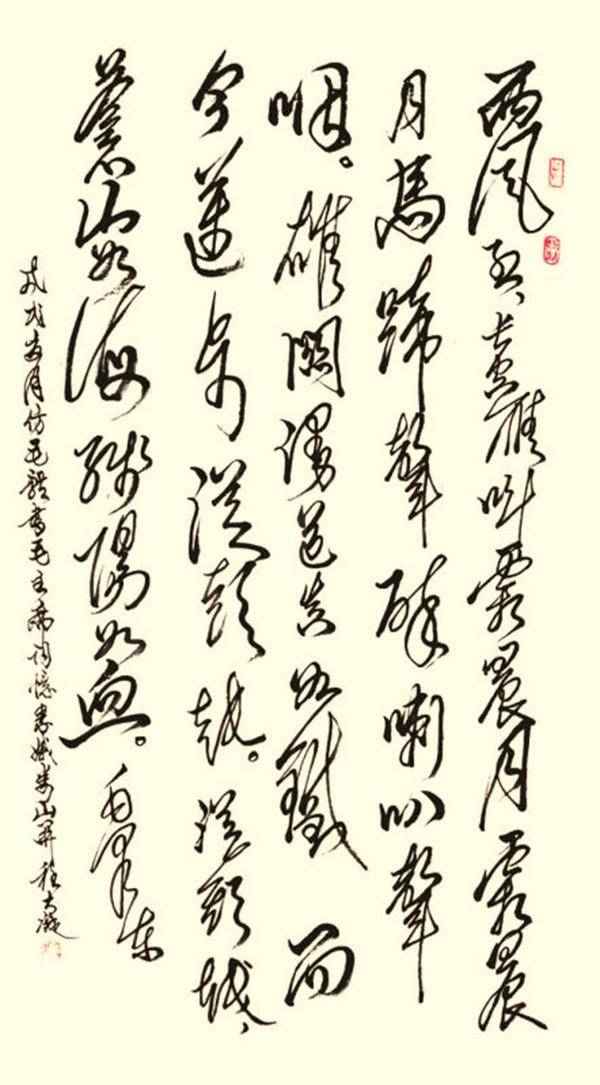 西风烈、長空雁叫霜晨月霜晨
月馬蹄聲碎喇叭聲
咽。雄関漫道真如鐵而
今邁步從頭越。從頭越、
蒼山如海殘陽如血。毛澤东
戊戌月仿毛體書毛主席詞憶秦娥娄山関